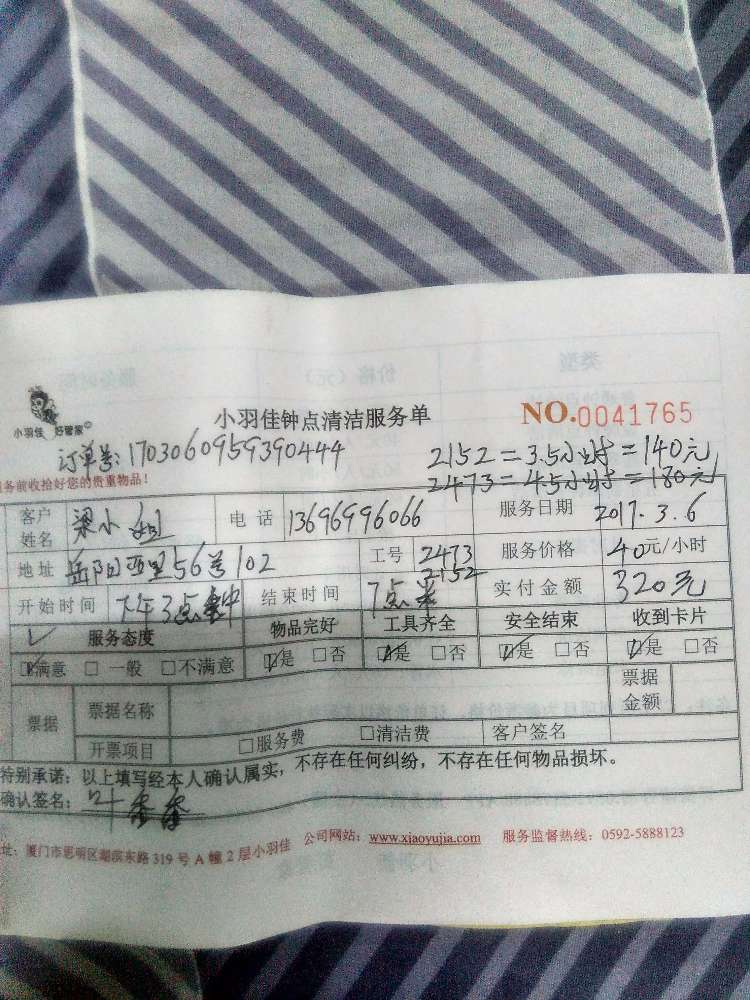 小羽佳 好管家
小羽佳钟点清洁服务单 NO.0041765
订单号:1703060959390444
2152=3.5小时=140元
2473=4.5小时=180元
务前收拾好您的贵重物品!
客户姓名 梁小姐 电话 13696996066 服务日期 2017.3.6
地址 岳阳西里56号102 工号 2473 2152 服务价格 40元/小时
开始时间 下午3点 结束时间 7点 实付金额 320元
服务态度 物品完好 工具齐全 安全结束 收到卡片
满意 □一般 □不满意 是 □否 是 □否 是 □否 是 □否
票据 票据名称 票据金额
开票项目 □服务费 □清洁费 客户签名
特别承诺:以上填写经本人确认属实,不存在任何纠纷,不存在任何物品损坏。
确认签名:叶
址:厦门市思明区湖滨东路319号A幢2层小羽佳 公司网站:www.xjaoyujia.com 服务监督热线:0592-5888123